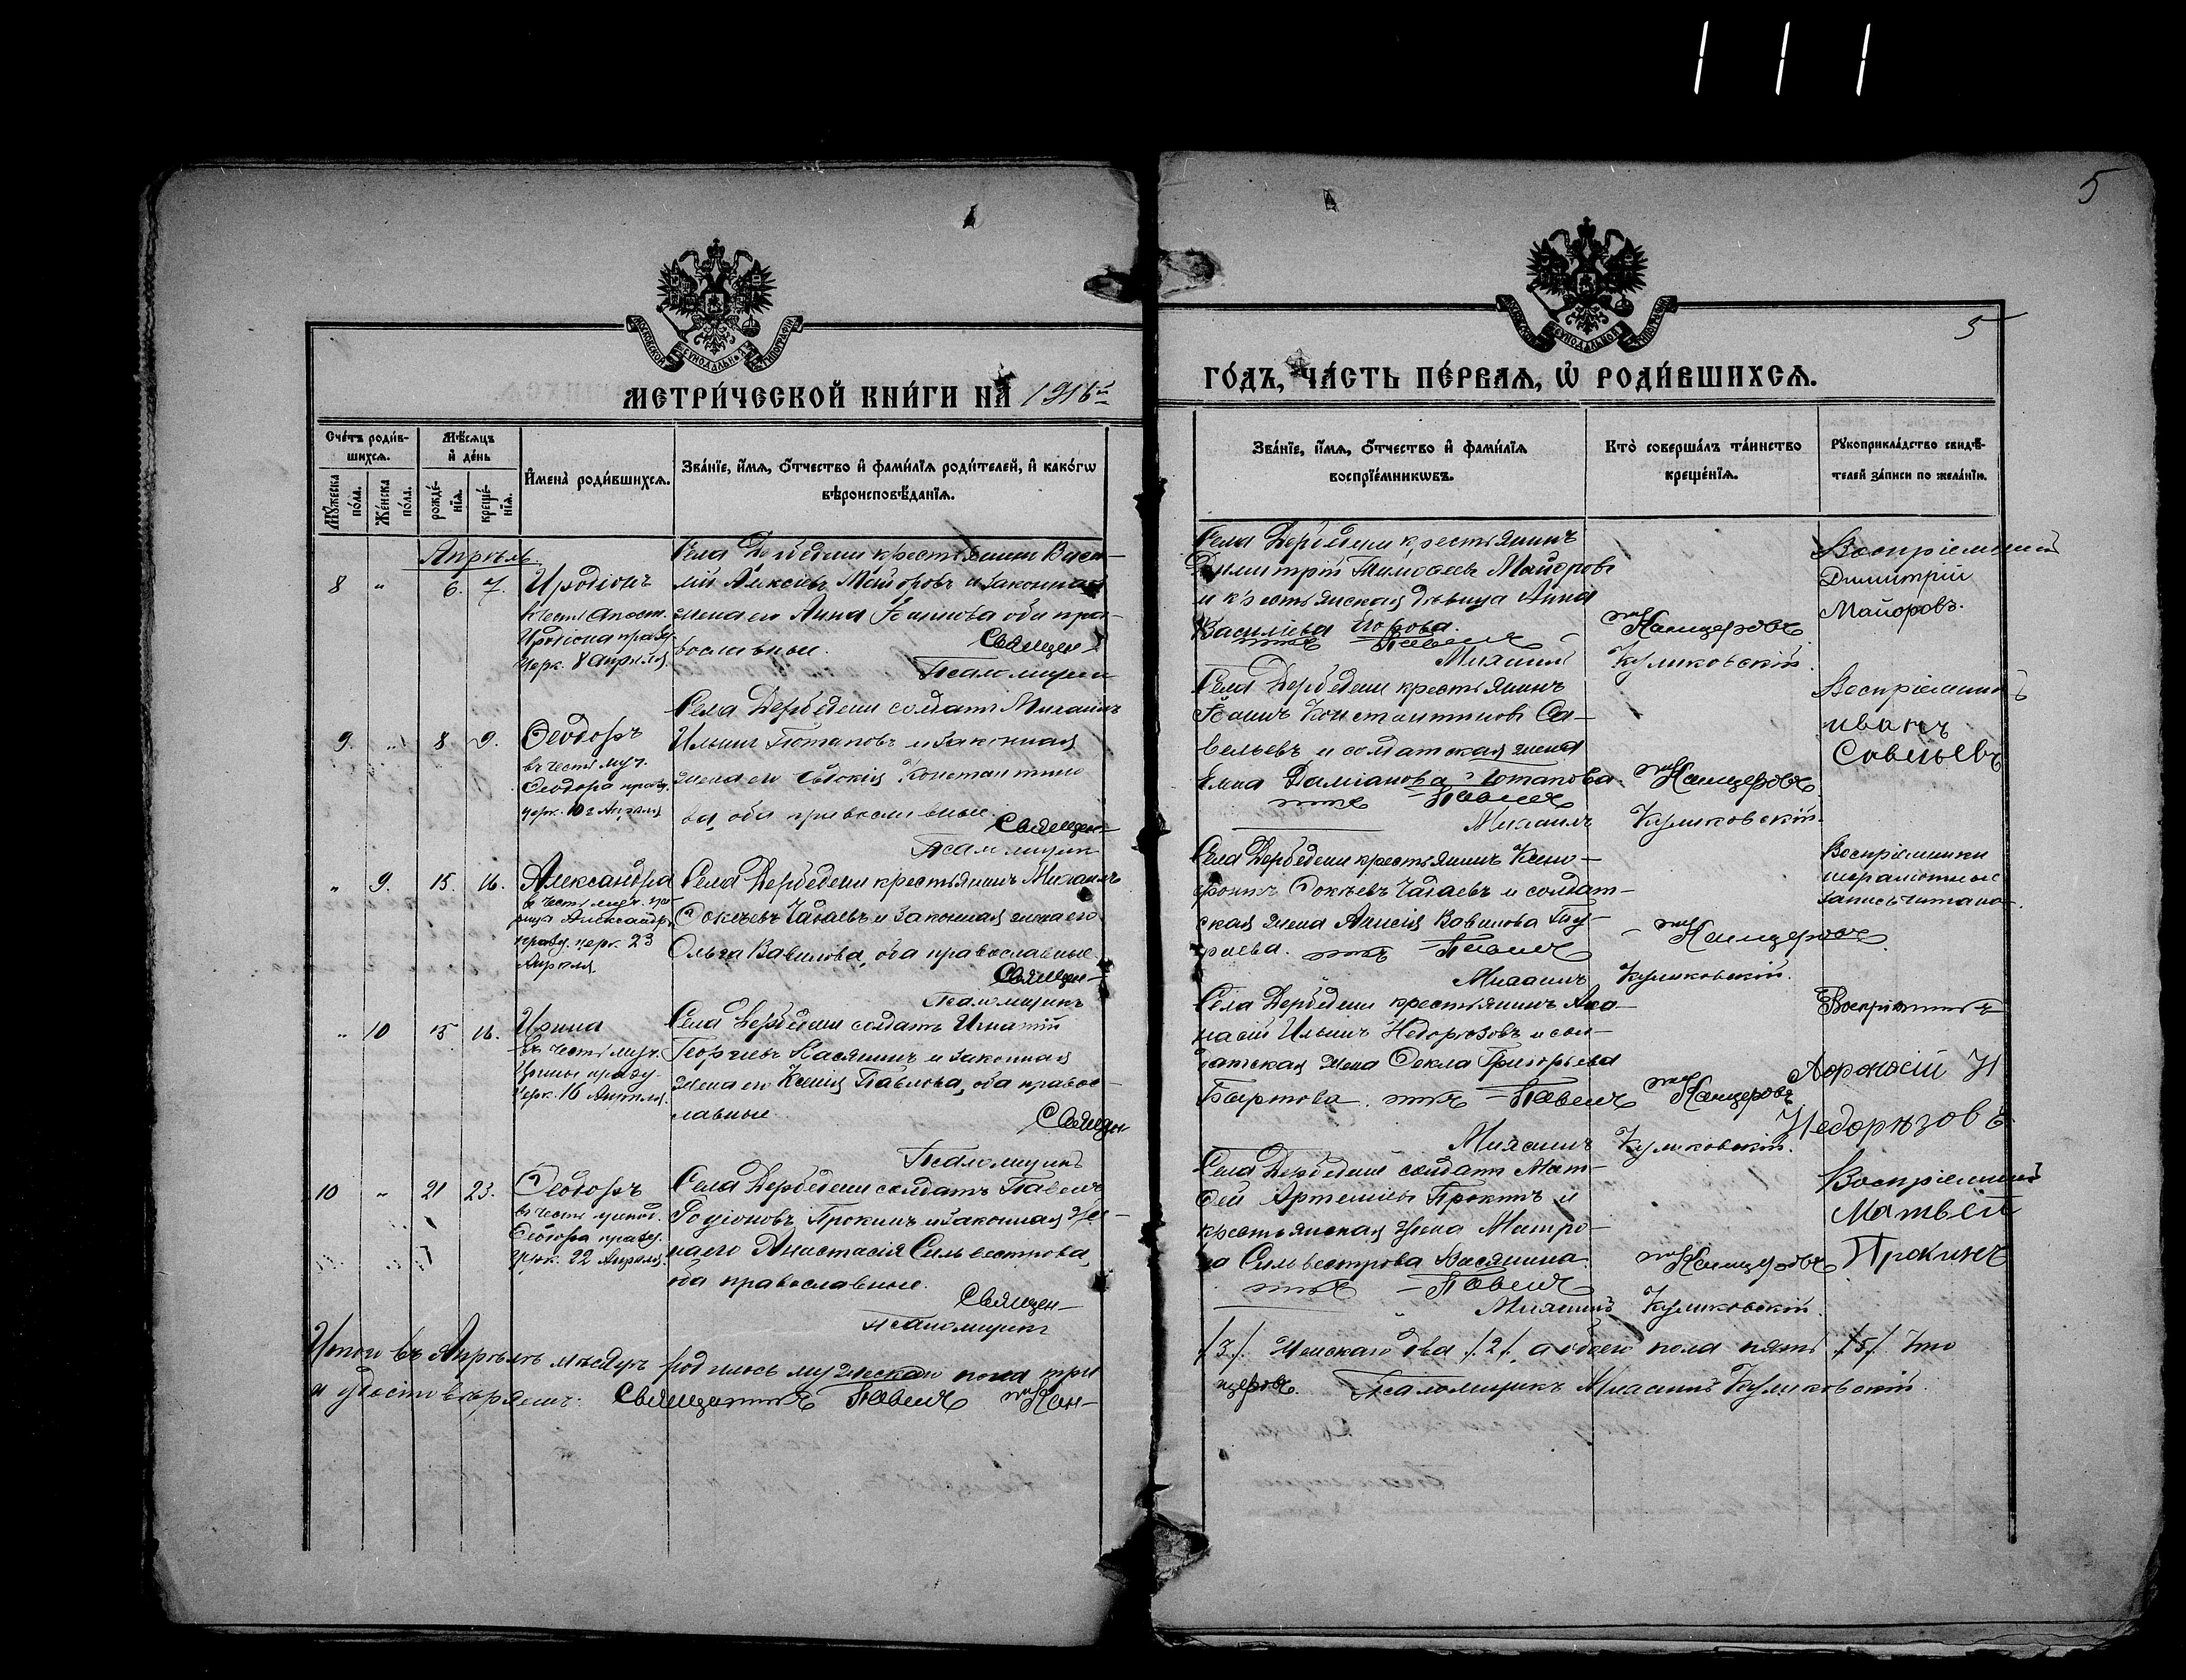 5
МОСКОВСКОЙ СѴНОДАЛЬНОЙ ТИПОГРАФІИ
МОСКОВСКОЙ СѴНОДАЛЬНОЙ ТИПОГРАФІИ
5
МЕТРИ́ЧЕСКОЙ КНИ́ГИ НА 1916й
ГО́ДЪ, ЧА́СТЬ ПЕ́РВАѦ, Ѡ РОДИ́ВШИХСѦ.
Сче́тъ роди́в-
шихсѧ.
Мѣ́сѧцъ
и де́нь
Мꙋ́жеска
по́ла.
Же́нска
по́ла.
рожде́-
нїѧ.
креще́-
нїѧ.
И҆мена̀ роди́вшихсѧ.
Зва́нїе, и҆́мѧ, о҆́тчество и҆ фами́лїѧ роди́телей, и҆ како́гѡ
вѣроисповѣ́данїѧ.
Зва́нїе, и҆́мѧ, о҆́тчество и҆ фами́лїѧ
воспрїе́мникѡвъ.
Кто̀ соверша́лъ та́инство
креще́нїѧ.
Рꙋкоприкла́дство свидѣ́-
телей за́писи по жела́нїю.
Апрѣль.
8 " 6. 7. Иродіонъ
въ честь апост.
Иродіона празд.
церк. 8 Апрѣля
Села Дербедени крестьянинъ Васи-
лій Алексѣевъ Майоровъ и законная
жена его Анна Іоаннова оба пра-
вославные.
Священ-
Псаломщикъ
Села Дербедени крестьянинъ
Димитрій Тимоѳеевъ Майоровъ
и крестьянская дѣвица Анна
Василіева
никъ Павелъ
Михаилъ
Канцеровъ
Куликовскій.
Воспріемникъ
Димитрій
Майоровъ.
9. " 8 9. Ѳеодоръ
въ честь муч.
Ѳеодора празд.
церк. 10 Апрѣля
Села Дербедени солдатъ Михаилъ
Ильинъ Потаповъ и законная
жена его Евдокія Константино
ва, оба православные.
Священ-
Псаломщикъ
Села Дербедени крестьянинъ
Іоаннъ Константиновъ Са-
вельевъ и солдатская жена
Даміанова Потапова.
никъ Павелъ
Михаилъ
Канцеровъ
Куликовскій.
Воспріемникъ
иванъ
Савельевъ
" 9. 15. 16. Александра
въ честь муч. ца-
рицы Александры
празд. церк. 23
Апрѣля
Села Дербедени крестьянинъ Михаилъ
Ѳокѣевъ Чадаевъ и законная жена его
Ольга Вавилова, оба православные
Священ-
Псаломщикъ
Села Дербедени крестьянинъ Ксено-
фонтъ Ѳокѣевъ Чадаевъ и солдат-
ская жена Анисія Вавилова
никъ Павелъ
Михаилъ
Канцеровъ
Куликовскій.
Воспріемники
неграмотные
запись читана.
" 10 15. 16. Ирина
въ честь муч.
Ирины празд.
церк. 16 Апрѣля.
Села Дербедени солдатъ Игнатій
Георгіевъ Касянинъ и законная
жена его Ксенія Павлова, оба правос-
лавные.
Священ-
Псаломщикъ
Села Дербедени крестьянинъ Аѳа-
насій Ильинъ Недорѣзовъ и сол-
датская жена Ѳекла Григорьева
никъ Павелъ
Михаилъ
Канцеровъ
Куликовскій.
Недорѣзовъ
10 " 21 23. Ѳеодоръ
въ честь препод.
Ѳеодора празд.
церк. 22 Апрѣля.
Села Дербедени солдатъ Павелъ
Родіоновъ Прокинъ и законная же-
на его Анастасія Сильвестрова,
оба православные.
Священ-
Псаломщикъ
Села Дербедени солдатъ Мат-
ѳей Артеміевъ Прокинъ и
крестьянская жена Матро-
на Сильвестрова
никъ Павелъ
Михаилъ
Канцеровъ
Куликовскій.
Воспріемникъ
Матвей
Прокинъ
Итого въ Апрѣлѣ мѣсяцѣ родилось мужескаго пола три
/3/. Женскаго два /2/, а обоего пола пять /5/ что
и удостовѣряемъ: Священникъ Павелъ Кан-
церовъ Псаломщикъ Михаилъ Куликовскій.